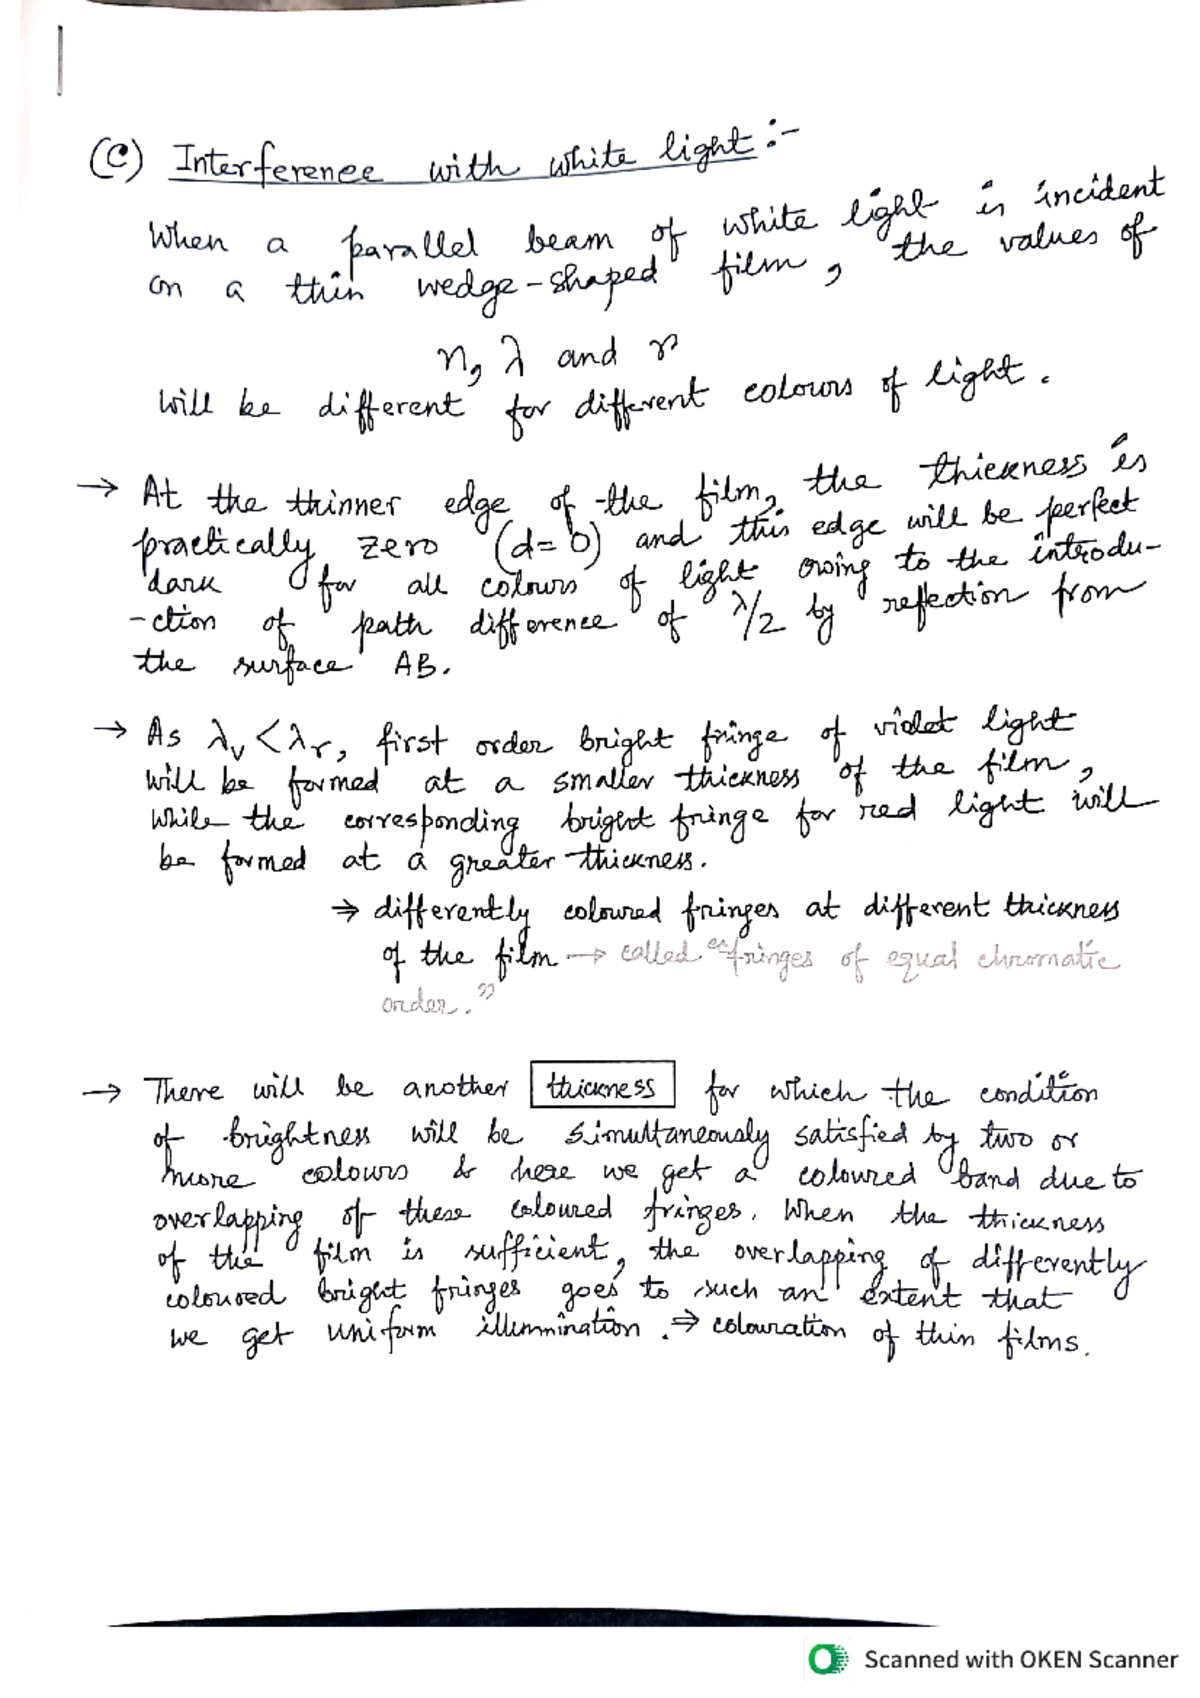 (C) Interference with white light :-
When a parallel beam of white light is incident
on a thin wedge-shaped film, the values of
n, λ and r
will be different for different colours of light.
→ At the thinner edge of the film, the thickness is
practically zero (d=0) and this edge will be perfect
dark for all colours of light owing to the introdu-
-ction of path difference of λ/2 by reflection from
the surface AB.
→ As λv < λr, first order bright fringe of violet light
will be formed at a smaller thickness of the film,
while the corresponding bright fringe for red light will
be formed at a greater thickness.
⇒ differently coloured fringes at different thickness
of the film → called "fringes of equal chromatic
order."
→ There will be another thickness for which the condition
of brightness will be simultaneously satisfied by two or
more colours & here we get a coloured band due to
overlapping of these coloured fringes. When the thickness
of the film is sufficient, the overlapping of differently
coloured bright fringes goes to such an extent that
we get uniform illummination. ⇒ colouration of thin films.
Scanned with OKEN Scanner